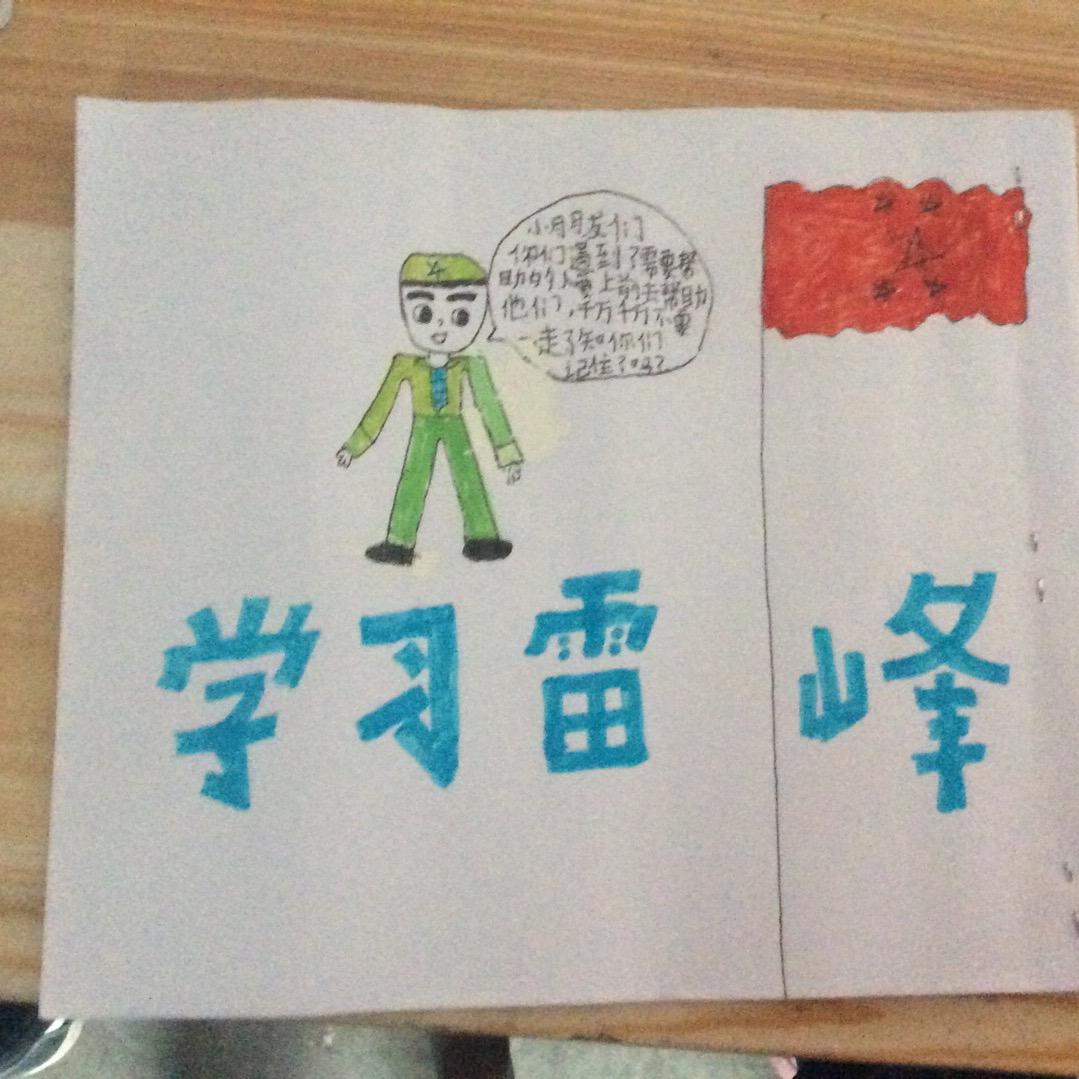 小朋友们
你们遇到了需要帮
助的人要上前去帮助
他们,千万千万不要
一走了知你们
记住了吗?
学习雷峰